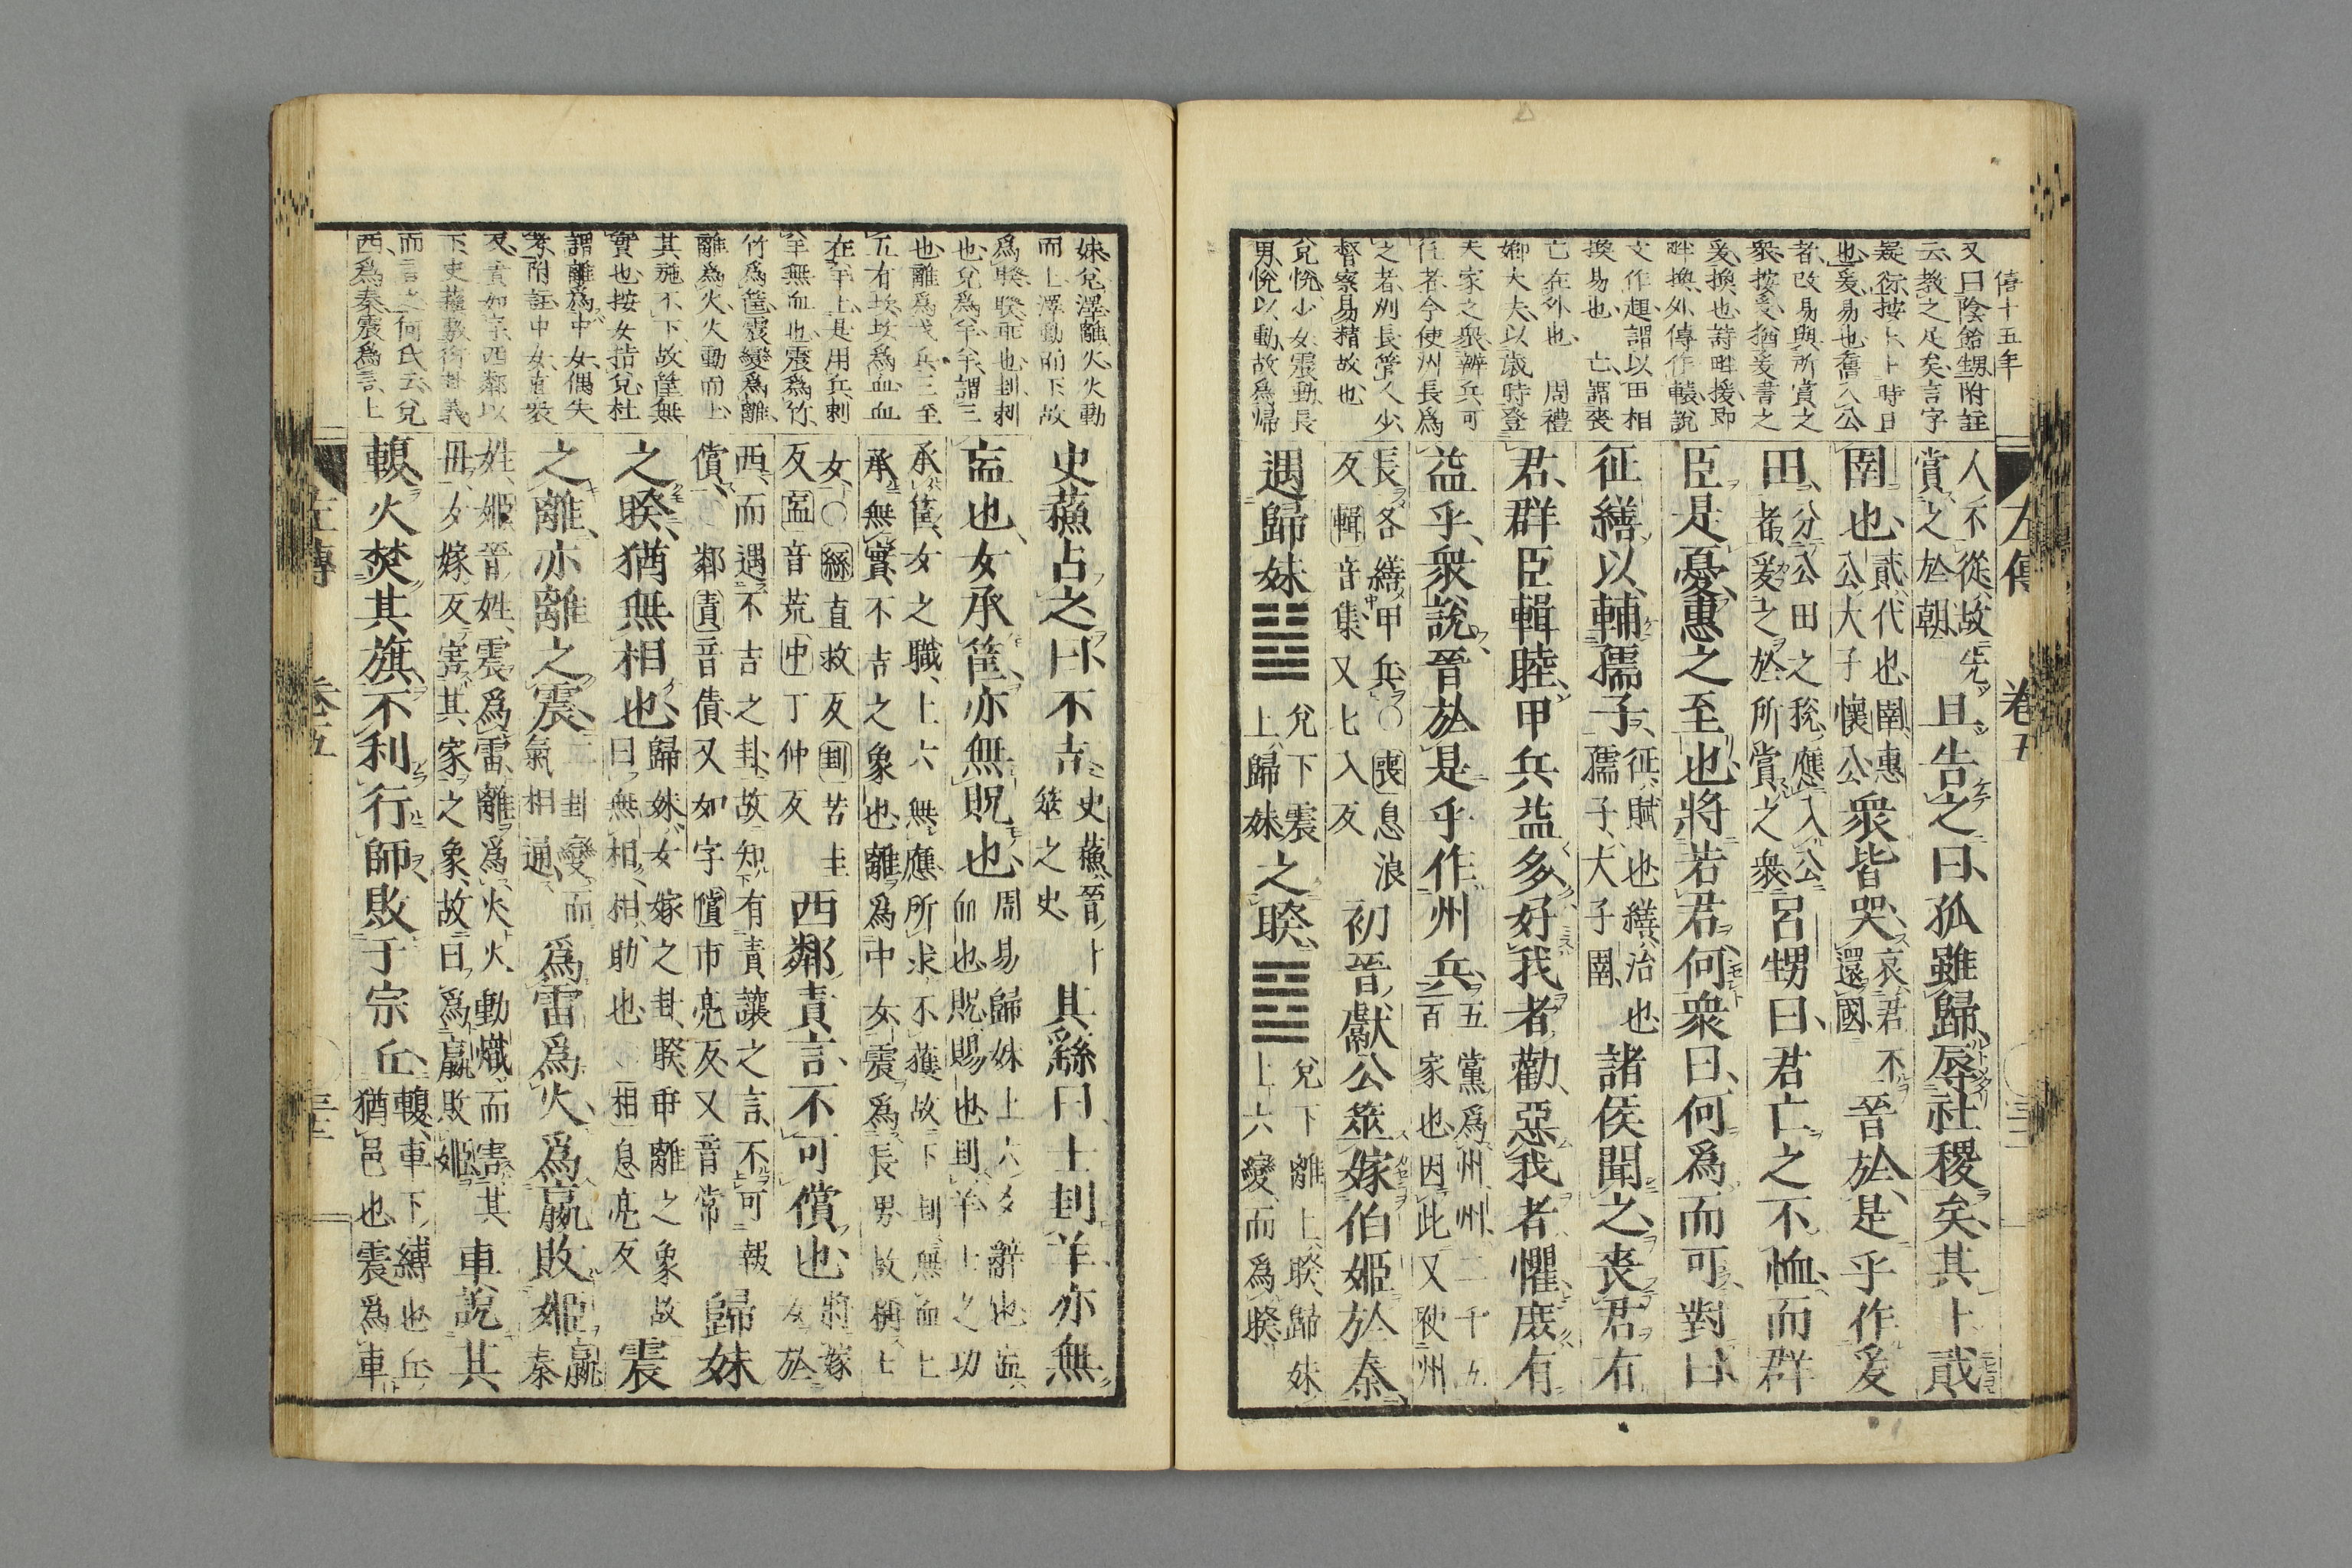 僖十五年
又曰陰飴甥附註
云教之足矣言字
疑衍按上卜時日
也爰易也舊入公
者改易與所賞之
衆按爰猶爰書之
爰換也詩畔援即
畔換外傳作轅說
文作 謂以田相
換易也　亡謂喪
亡在外也　周禮
鄉大夫以歲時登
夫家之衆辨兵可
任者今使州長爲
之者州長管人少
督察易精故也
兌悅少女震動長
男悅以動故爲帰
左傳　卷五
人不從故先賞之於朝且告之曰孤雖歸辱社稷矣其卜貳
圉也貳代也圉惠公大子懷公衆皆哭哀君不還國晉於是乎作爰
田分公田之稅應入公者爰之於所賞之衆呂甥曰君亡之不恤而群
臣是憂惠之至也將若君何衆曰何爲而可對曰
征繕以輔孺子征賦也繕治也孺子大子圉諸侯聞之喪君有
君群臣輯睦甲兵益多好我者勸惡我者懼庶有
益乎衆說晉於是乎作州兵五黨爲州州二千五百家也因此又使州
長各繕甲兵〇喪息浪反輯音集又七入反初晉獻公筮嫁伯姬於秦
遇歸妹䷵兌下震上歸妹之睽䷥兌下離上睽歸妹上六變而爲睽
妹兌澤離火火動
而上澤動而下故
爲睽睽乖也刲刺
也兌爲羊羊謂三
也離爲戈兵三至
五有坎坎爲血血
在羊上是用兵刺
羊無血也震爲竹
竹爲筐震變爲離
離爲火火動而上
其施不下故筐無
實也按女拮兌杜
謂離爲中女偶失
考附註中女直衆
反責如字西鄰以
下史蘇敷衍卦義
而言之何氏云兌
西爲秦震爲言上
史蘇占之曰不吉史蘇晉卜筮之史其繇曰士刲羊亦無
衁也女承筐亦無貺也周易歸妹上六爻辭也衁血也貺賜也刲羊士之功
承筐女之職上六無應所求不獲故下刲無血上承無實不吉之象也離爲中女震爲長男故稱士
女〇繇直救反刲苦圭反衁音荒中丁仲反西鄰責言不可償也將嫁女於
西而遇不吉之卦故知有責讓之言不可報償鄰責音債又如字償市亮反又音常歸妹
之睽猶無相也歸妹女嫁之卦睽乖離之象故曰無相相助也相息亮反震
之離亦離之震二卦變而氣相通爲雷爲火爲嬴敗姬嬴秦
姓姬晉姓震爲雷離爲火火動熾而害其母女嫁反害其家之象故曰爲嬴敗姬車說其
輹火焚其旗不利行師敗于宗丘輹車下縛也丘猶邑也震爲車
左傳　卷五